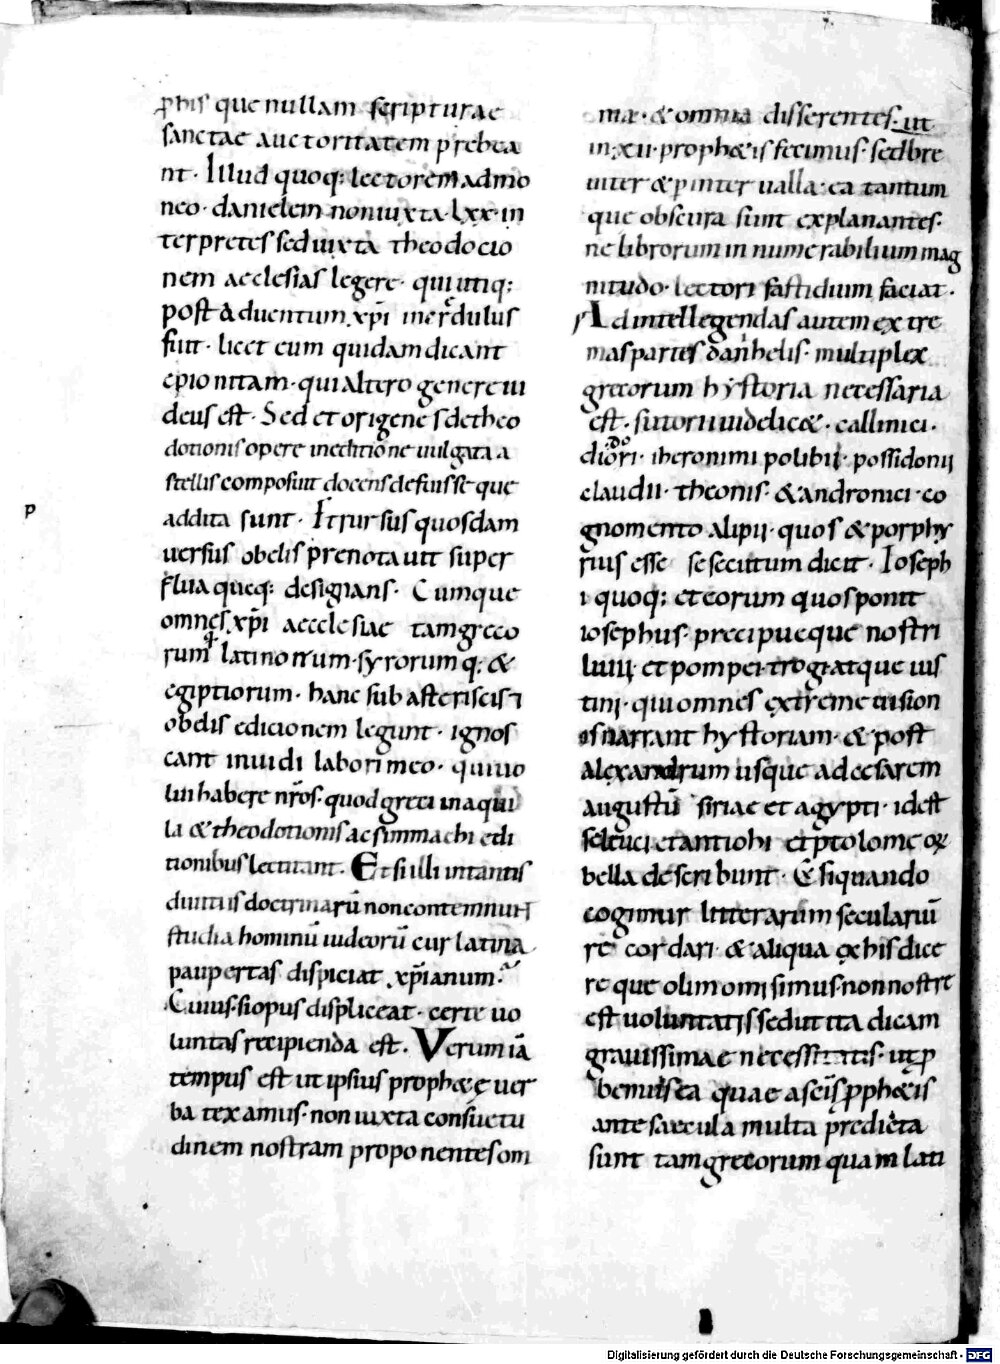 p̄his que nullam scripturae
sanctae auctoritatem prebea
nt· Illud quoq: lectorem admo
neo· danielem non iuxta· lxx· in
terpretes sed iuxta theodocio
nem aeclesias legere· qui utiq:
post aduentum xp̄i incredulus
fuit· licet eum quidam dicant
epionitam· qui altero genere iu
deus est· Sed et origenes de theo
dotionis opere in editione uulgata a
stellis composuit docens defuisse que
addita sunt· Itrursus quosdam
uersus obelis prenotauit super
flua queq: designans· Cumque
omnes xp̄i aecclesiae tam greco
rum q latinorrum· syrorum q: &
egiptiorum· hanc sub asteriscis 7
obelis edicionem legunt· ignos
cant inuidi labori meo· qui uo
lui habere nr̄os· quod greci in aqui
la & theodotionis ac simmachi edi
tionibus lectitant· Et si illi in tantis
diuitiis doctrinarū non contemnunt
studia hominū iudeorū cur latina
paupertas dispiciat xp̄ianum·
Cuius· si opus displiceat· certe uo
luntas recipienda est. Verum iā
tempus est ut ipsius proph&ę uer
ba texamus· non iuxta consuetu
dinem nostram proponentes om
p
nia· & omnia disserentes· ut
in xii· proph&is fecimus· sed bre
uiter & p inter ualla· ea tantum
que obscura sunt explanantes·
ne librorum innumerabilium mag
nitudo· lectori fastidium faciat·
Ad intellegendas autem extre
mas partes danihelis· multiplex
grecorum hystoria necessaria
est· sutorii uidelic&· callinici·
do
diori· iheronimi polibii· possidonii
claudii· theonis· & andronici· co
gnomento alipii· quos & porphy
rius esse se secutum dicit· Ioseph
i quoq: et eorum quos ponit
iosephus· precipueque nostri
liuii· et pompei trogi· atque ius
tini· qui omnes extreme uision
is narrant hystoriam· & post
alexandrum usque ad cesarem
augustū siriae et ægypti· id est
seleuci et antiohi et ptolomeoꝝ
bella describunt· Et si quando
cogimur litterarum seculariū
recordari· & aliqua ex his dice
re que olim omisimus· non nostre
est uoluntatis sed ut ita dicam
grauissimae necessitatis· ut p
bemus ea quae a sc̄is pproph&is
ante saecula multa predicta
sunt tam grecorum quam lati
Digitalisierung gefördert durch die Deutsche Forschungsgemeinschaft - DFG